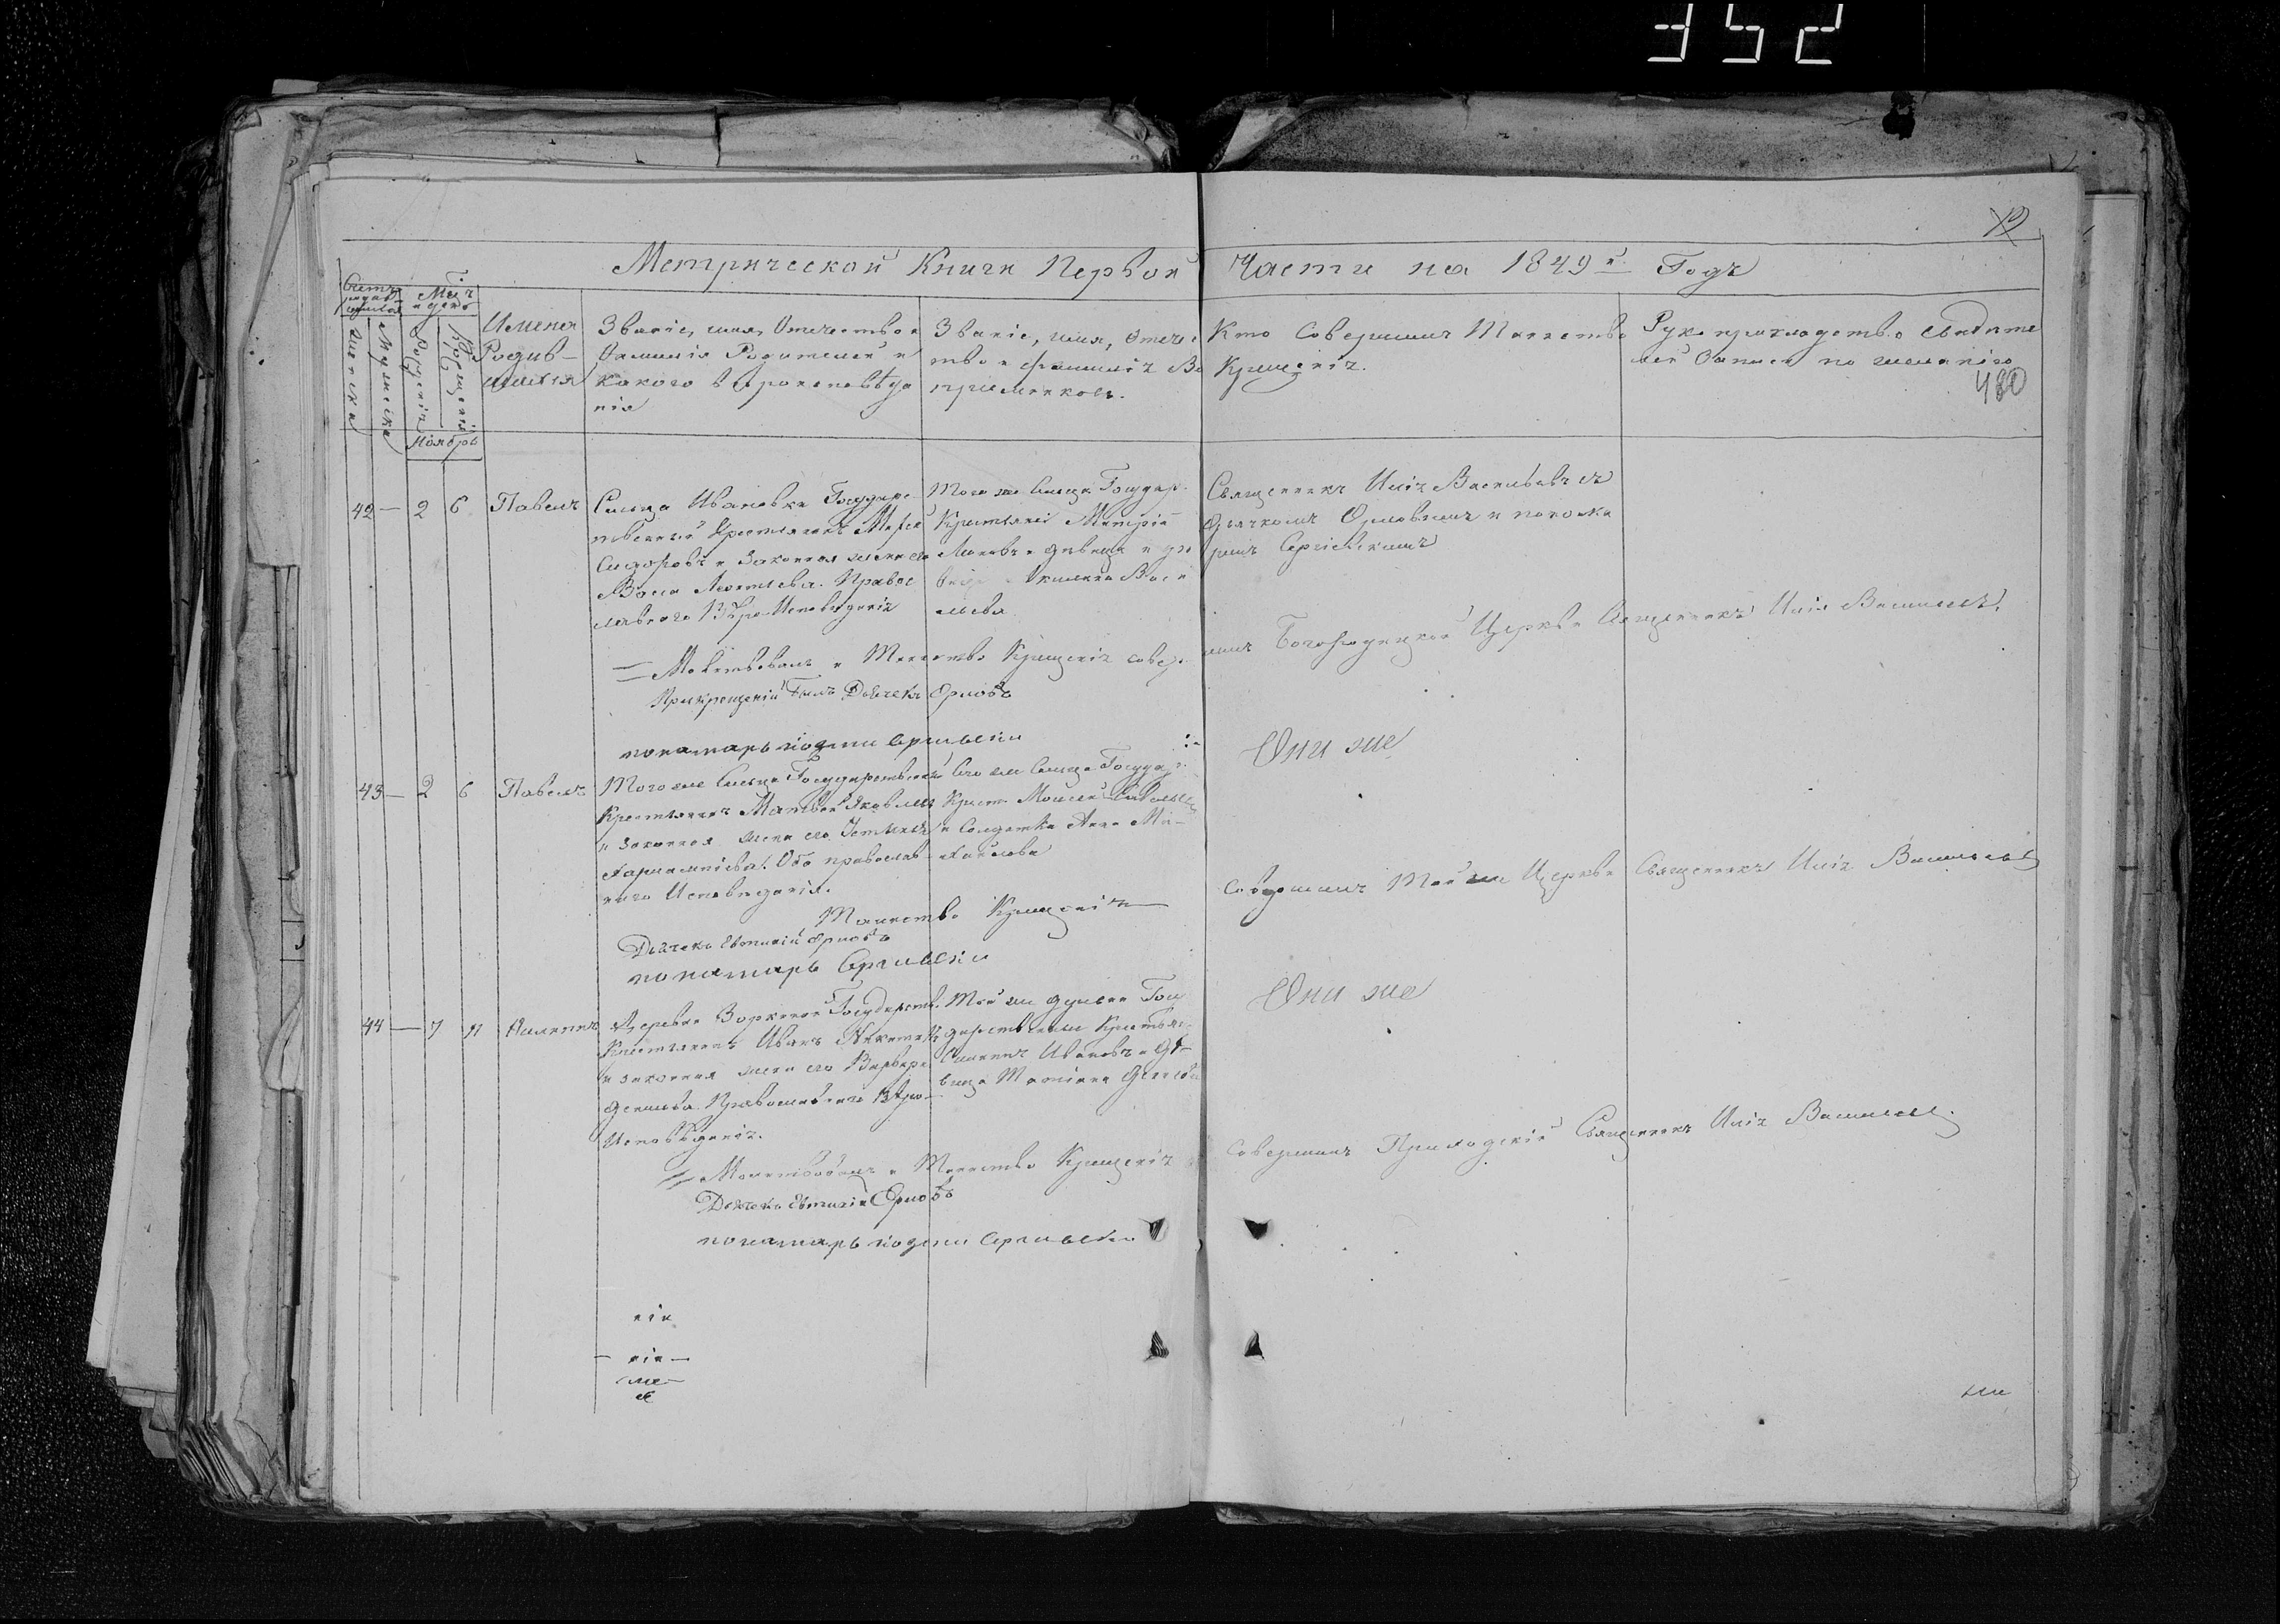 352
12
Метрической Книги Первой Части на 1849й Годъ
Мужеска
Женска
Рожденія
Крещенія
Ноябрь
Имена
Родив-
шихся
Званіе, имя, Отчество и
Фамилія Родителей и
какого вѣроисповѣда
нія
Званіе, имя, Отчес
тво и фамилія Во
пріемниковъ.
Кто Совершилъ Таинство
Крещенія.
Рукоприкладство Свидѣте
лей Записи по желанію
480
42 — 2 6 Павелъ
Сельца Ивановки Государс
твенный Крестьянинъ
Сидоровъ и Законная жена его
Леонтьева. Правос
лавнаго Вѣроисповѣданія
Того же Сельца Государ.
Крестьяне
девица
Священникъ Илія Васильевъ съ
Дьячкомъ Орловымъ и понома
ремъ Сергіевскимъ
Молитвовалъ и Таинство Крещенія совершилъ Богородицкой Церкви Священникъ Илія Васильевъ
При крещеніи былъ Дьячекъ Орловъ
пономарь Сергиевски
43 — 2 6 Павелъ
Того же Сельца Государственный
Крестьянинъ Матвей Яковлевъ
и законная жена его Устинья
Оба православ
наго Исповеданія.
Того же Сельца Государ.
Крест. Моисей
и Солдатка Анна Ми-
хайлова
Они же
Таинство Крещенія Совершилъ Той же Церкви Священникъ Илія Васильевъ
Дьячекъ Евтихій Орловъ
пономарь Сергиевски
44 — 7 11 Филиппъ
Деревни Государств.
Крестьянинъ Иванъ Никитинъ
и законная жена его Варвара
Денисова Православнаго Вѣро
Исповѣданія.
Той же деревни Госу
дарственные Крестьяне
Ивановъ и Дѣ
вица
Они же
Молитвовалъ и Таинство Крещенія Совершилъ Приходскій Священникъ Илія Васильевъ.
Дьячекъ Евтихій Орловъ
пономарь Сергиевски
нія
нія
же